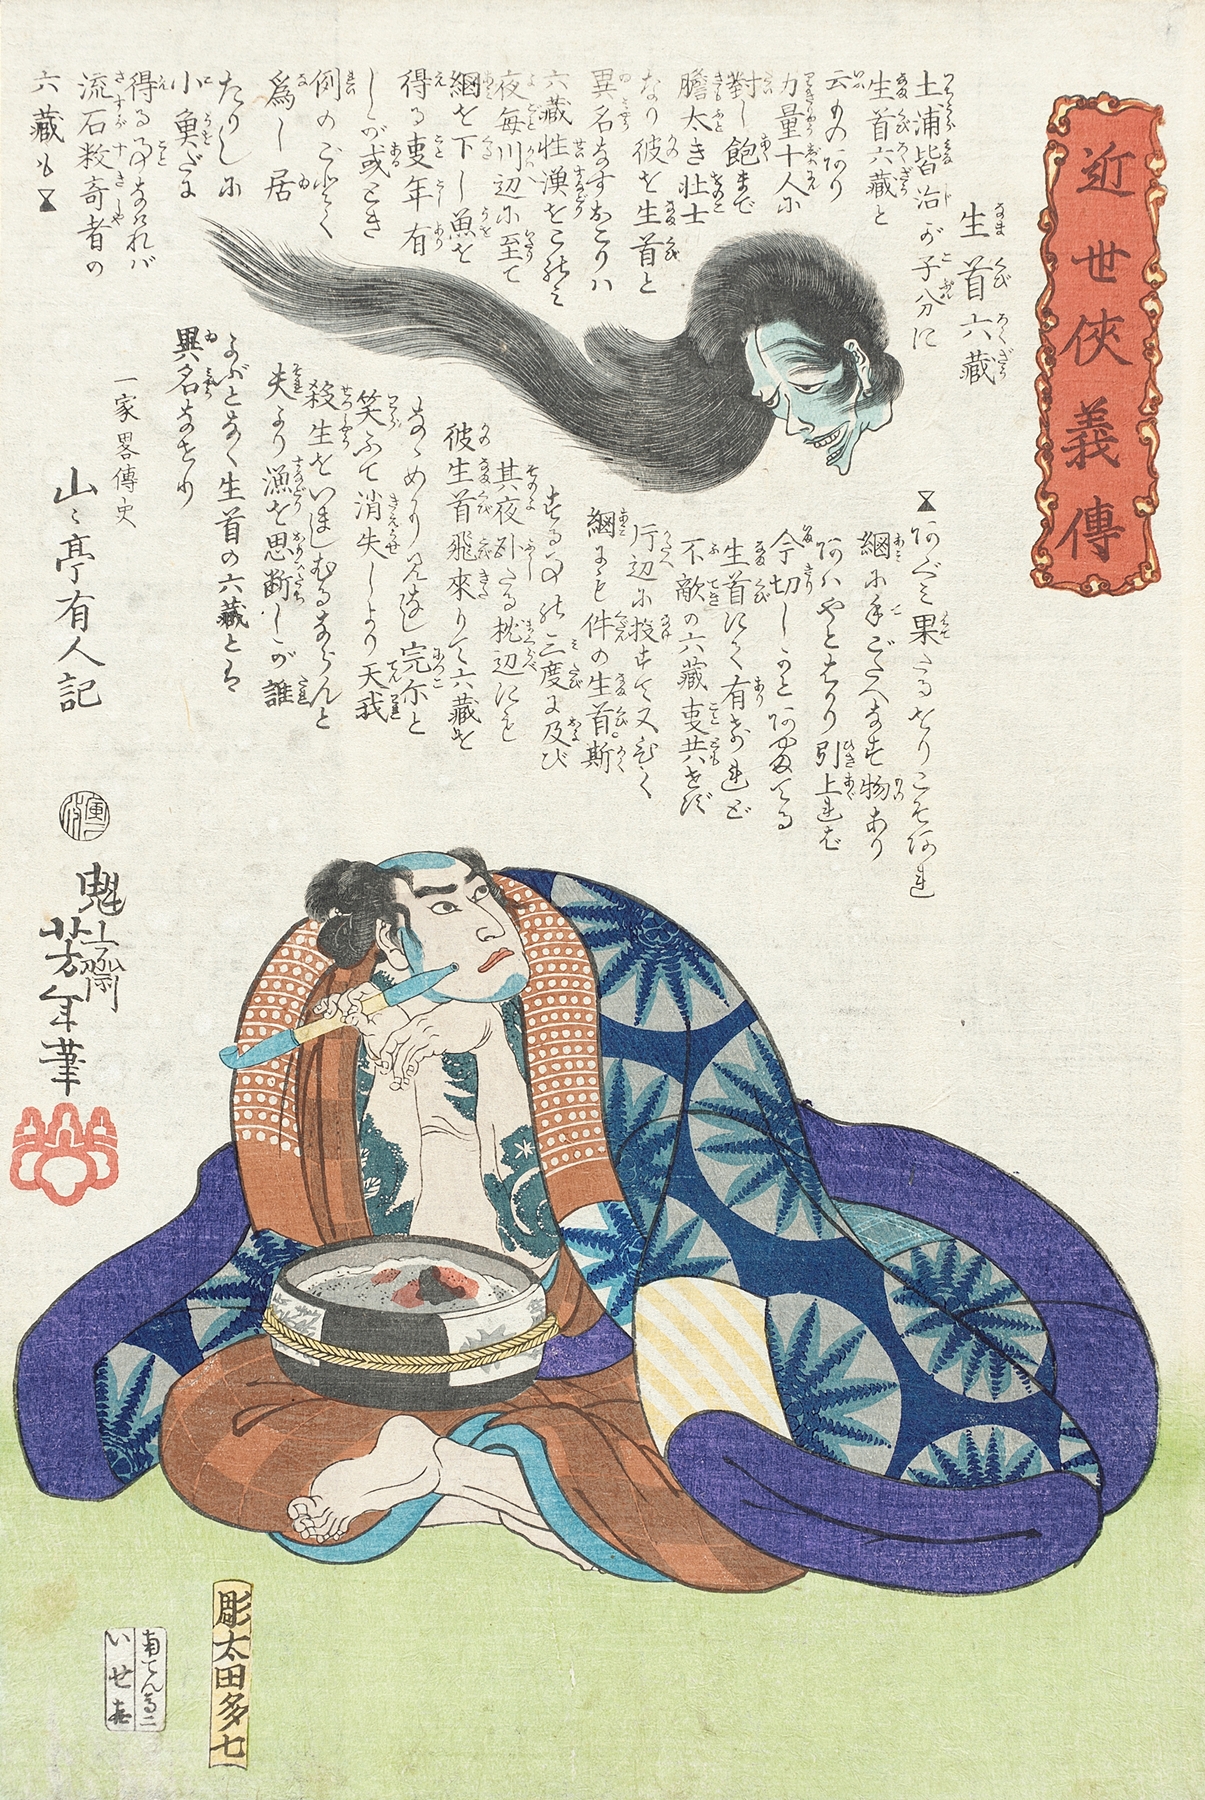 近世侠義傳
生首六藏
土浦皆治が子分に
生首六藏と
云ものあり
力量十人に
對し飽まで
膽太き壮士
なり彼を生首と
異名なすおこりハ
六藏性漁をこのみ
夜毎川辺に至て
網を下し魚を
得る事年有
しが或とき
例のごとく
爲し居
たりしに
小魚だに
得る事なけれバ
流石殺奇者の
六藏も
網に手ごたへなす物あり
引上れば
今切しかと
生首にて有けれど
不敵の六藏事共せず
川辺に投すて又もや
網に件の生首斯
する事三度に及び
其夜臥たる枕辺にも
彼生首飛來りて六藏を
ながめ見送し完尓と
笑ふて消失しより天我
殺生をいましむるならんと
夫より漁を思断しが誰
よぶとなく生首の六藏とハ
異名なせり
一家畧傳史
山々亭有人記
魁齋芳年筆
彫太田多七
いせ喜